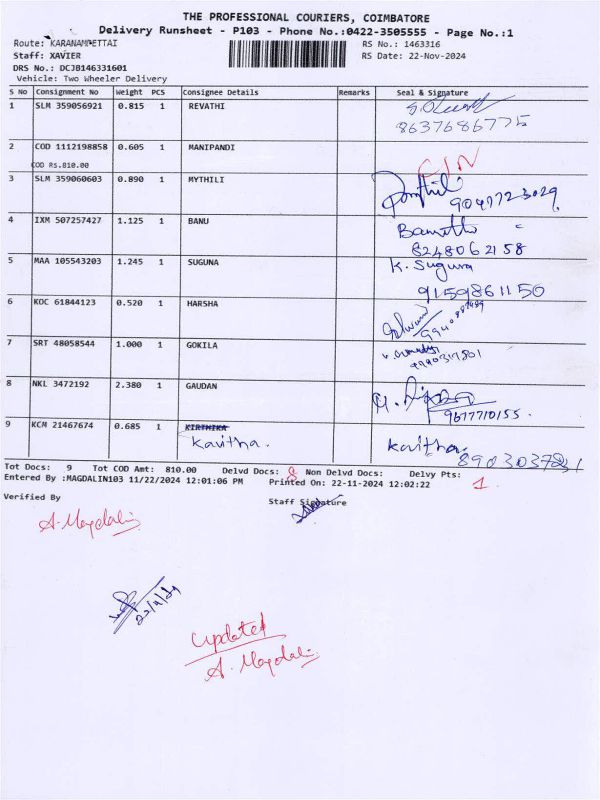 THE PROFESSIONAL COURIERS, COIMBATORE
Delivery Runsheet - P103 - Phone No.:0422-3505555 - Page No.:1
Route: KARANAMPETTAI RS No.: 1463316
Staff: XAVIER RS Date: 22-Nov-2024
DRS No.: DCJB146331601
Vehicle: Two Wheeler Delivery
S No Consignment No Weight PCS Consignee Details Remarks Seal & Signature
1 SLM 359056921 0.815 1 REVATHI
8637686775
2 COD 1112198858 0.605 1 MANIPANDI
COD Rs.810.00
3 SLM 359060603 0.890 1 MYTHILI
9047723029
4 IXM 507257427 1.125 1 BANU
8248062158
5 MAA 105543203 1.245 1 SUGUNA K. Suguna
9159861150
6 KOC 61844123 0.520 1 HARSHA
7 SRT 48058544 1.000 1 GOKILA
8 NKL 3472192 2.380 1 GAUDAN
9677710155.
9 KCM 21467674 0.685 1 KIRTHIKA
Kavitha. Kavitha.
Tot Docs: 9 Tot COD Amt: 810.00 Delvd Docs: 8 Non Delvd Docs: Delvy Pts: 1
Entered By :MAGDALIN103 11/22/2024 12:01:06 PM Printed On: 22-11-2024 12:02:22
Verified By Staff Signature
A. Magdalin
22/11/24
Updated
A. Magdalin